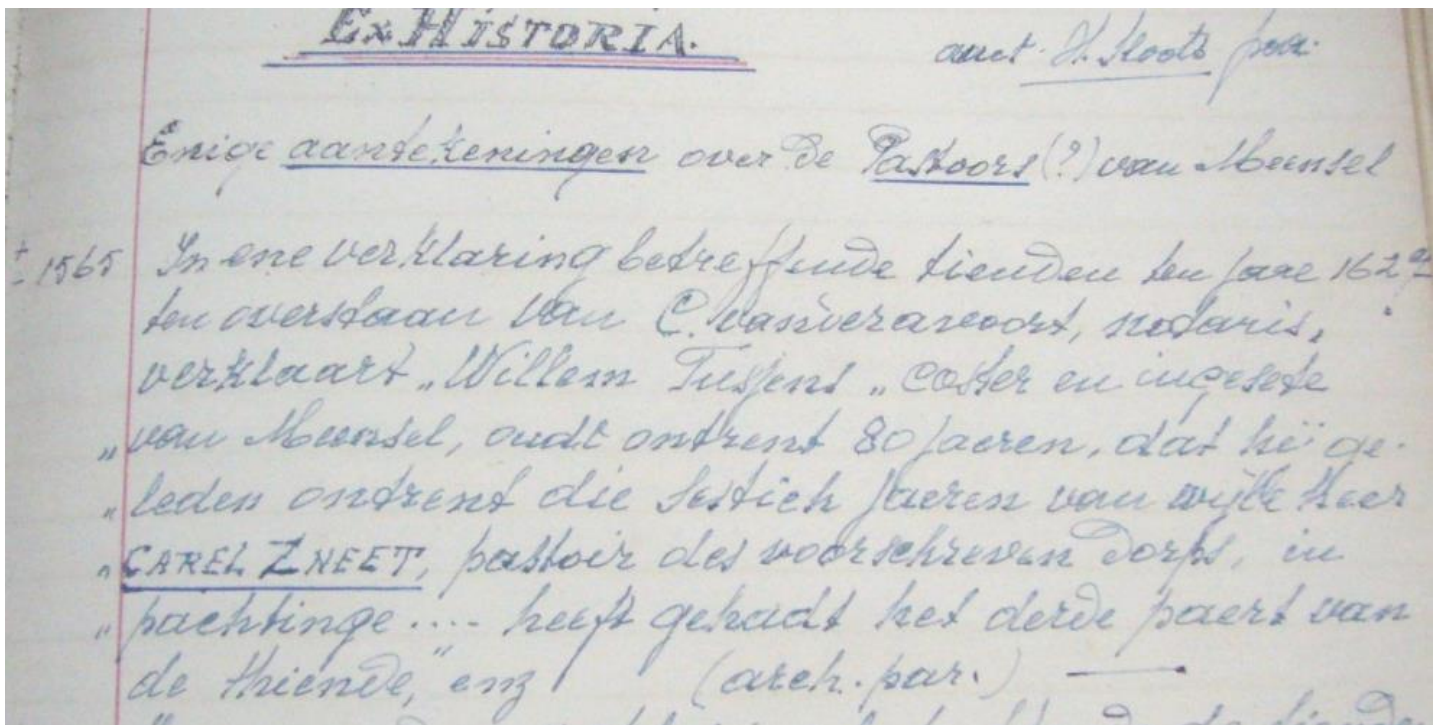 Ex HISTORIA.
auct. H. Sloots par.
Enige aantekeningen over de Pastoors (?) van Meensel
± 1565 In ene verklaring betreffende tienden ten jare 162
ten overstaan van C. vanderavoort, notaris,
verklaart „Willem Tussens „coster en ingesete
„van Meensel, oudt ontrent 80 jaeren, dat hij ge-
„leden ontrent die sestich jaeren van wijle Heer
„CAREL ZNEET, pastoir des voorschreven dorps, in
„pachtinge .... heeft gehadt het derde paert van
de thiende," enz (arch. par.) —